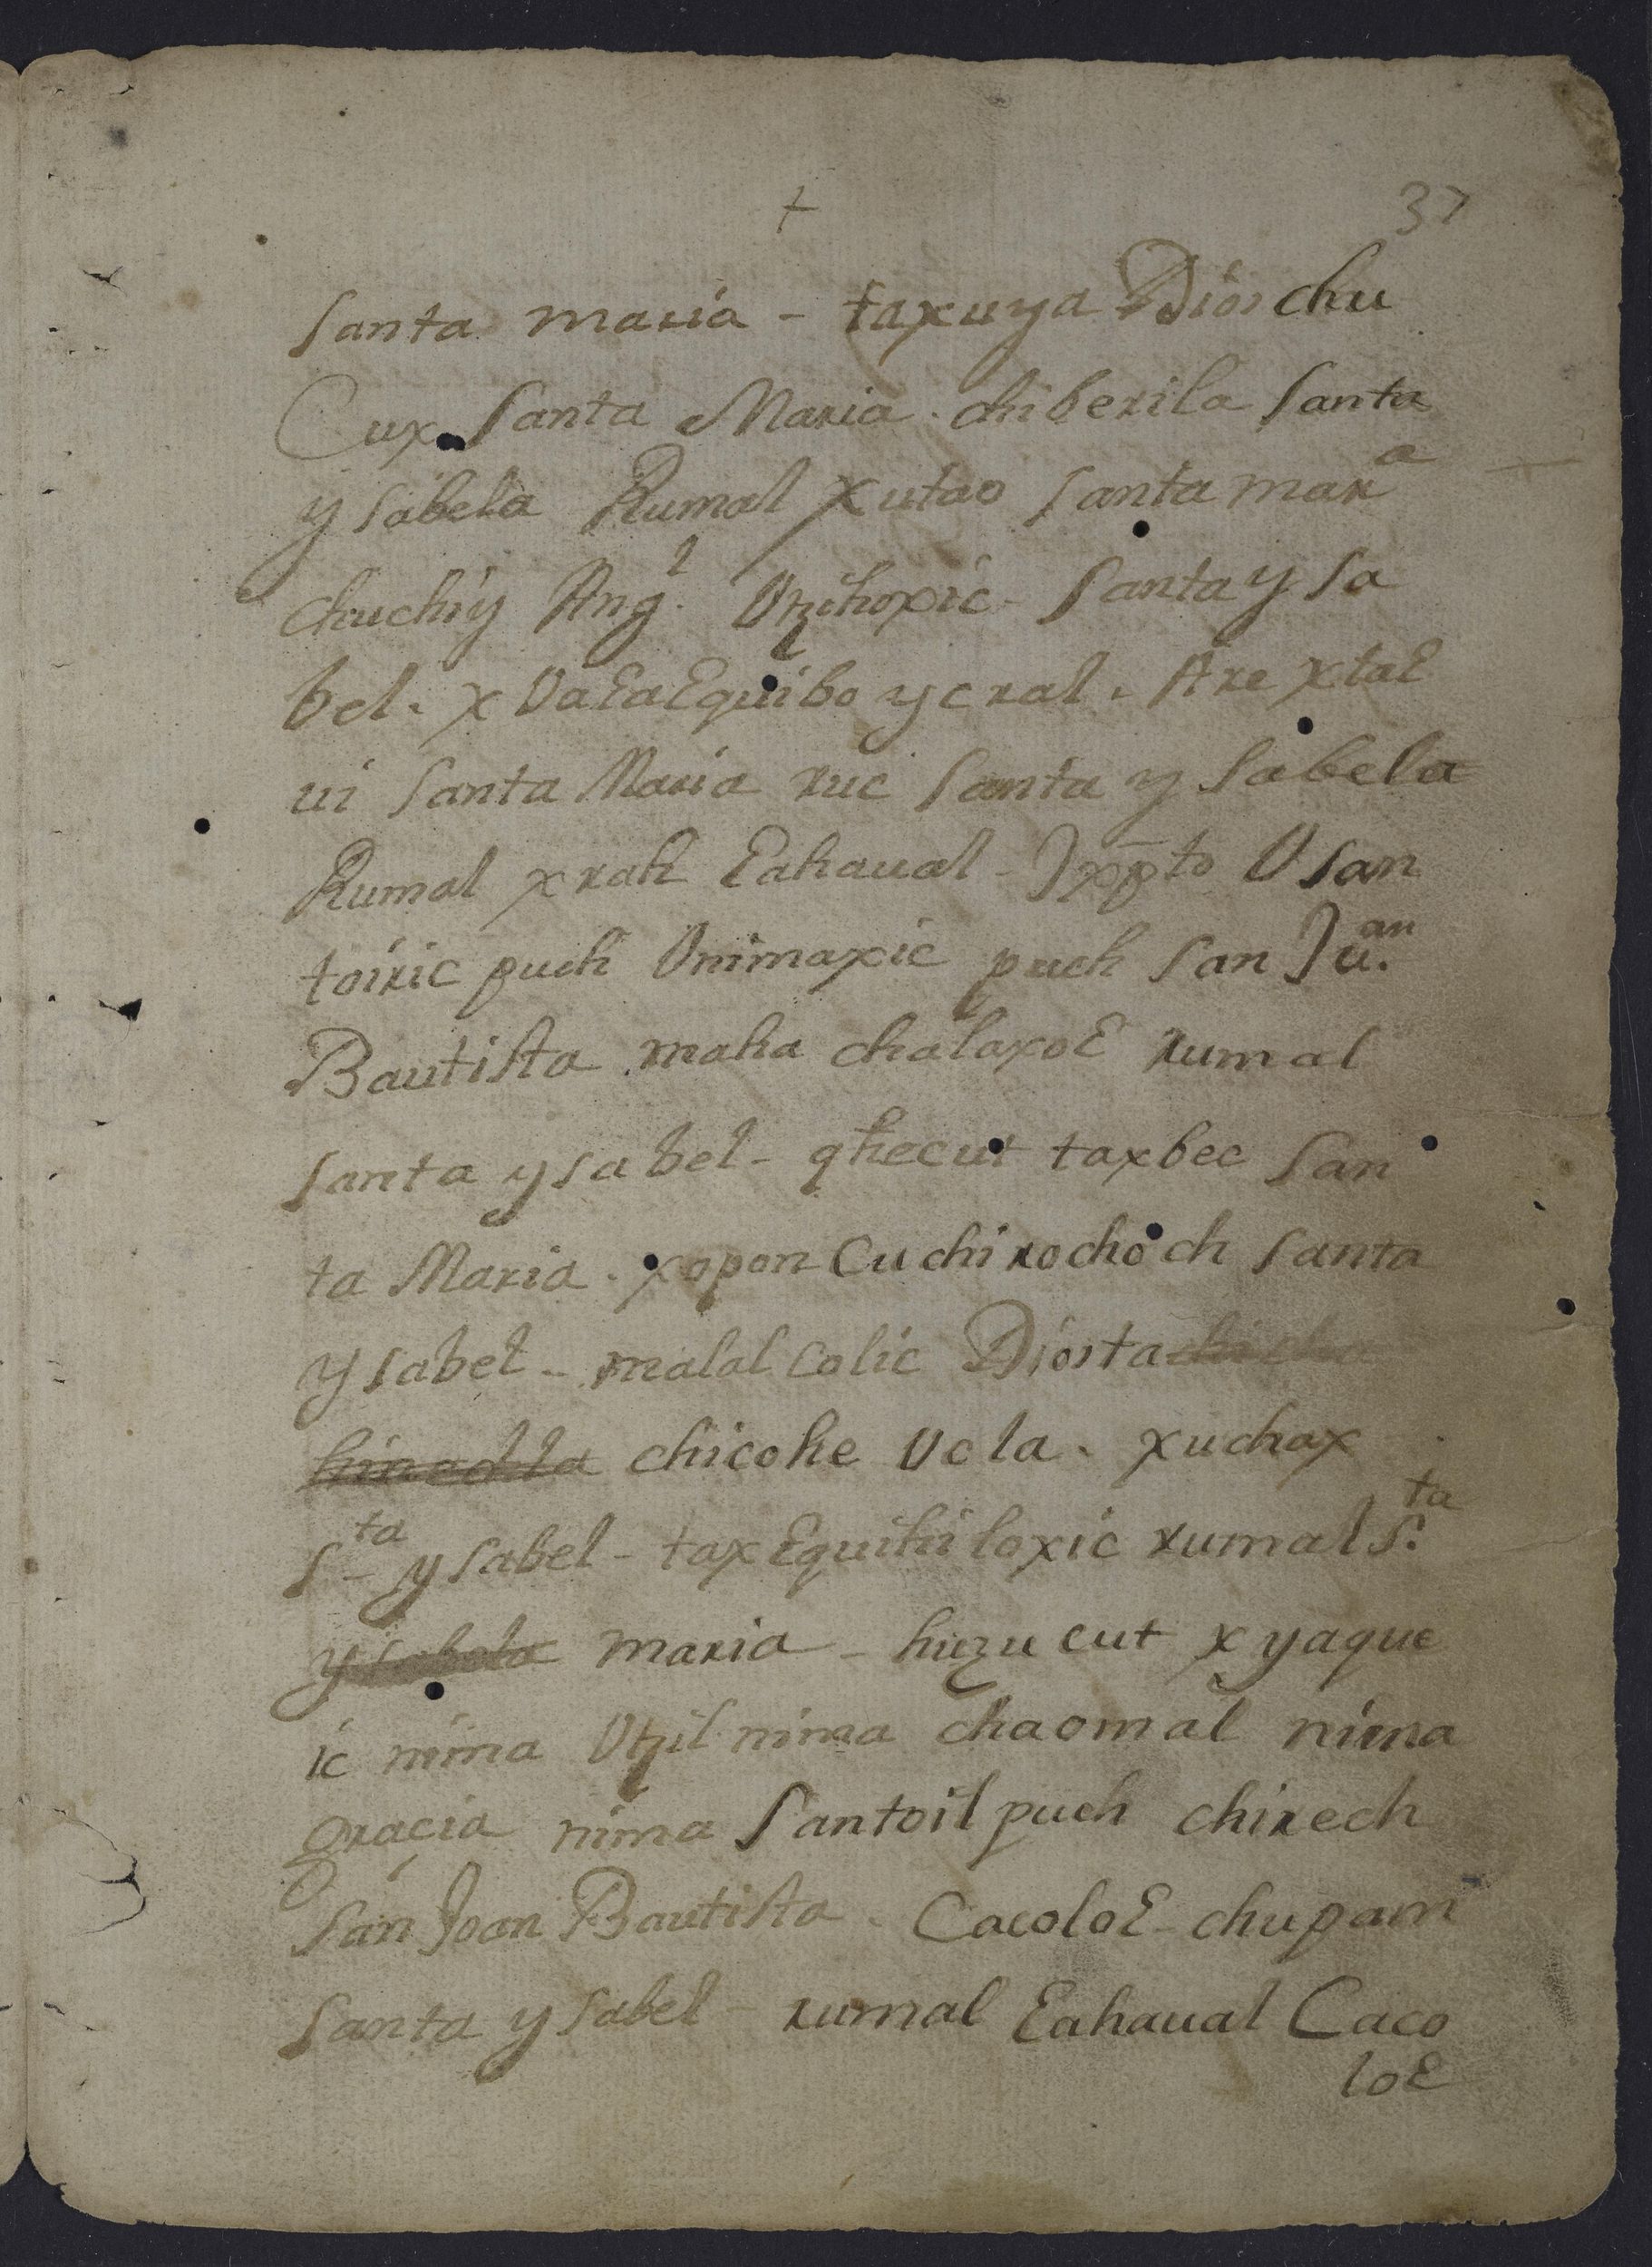 + 37
santa maria - taxuya Dios chu
Cux santa Maria. chiberila santa
ysabela Rumal xutao santa marᵃ
chuchiy Angˡ. Utzihoxic - santa ysa
bel. x Vaɛaɛquibo ycral. Are xtaɛ
ui santa Maria ruc santa ysabela
Rumal xrah ɛahaual - Jxp̄to Usan
toiric puch Unimaxic puch san Juᵃⁿ.
Bautista maha chalaxoɛ rumal
santa ysabel - qhecut taxbec san
ta Maria. xopon Cu chirochoch santa
ysabel - malal colic Diosta
chicohe Vcla. xuchax
sᵗᵃ ysabel - taxɛquihiloxic rumal s.ᵗᵃ
ysabela maria - huzu cut xyaque
ic nima Utzil nima chaomal nima
gracia nima santoil puch chirech
san Joan Bautista. Cacoloɛ - chupam
santa ysabel - rumal ɛahaual Caco
loɛ